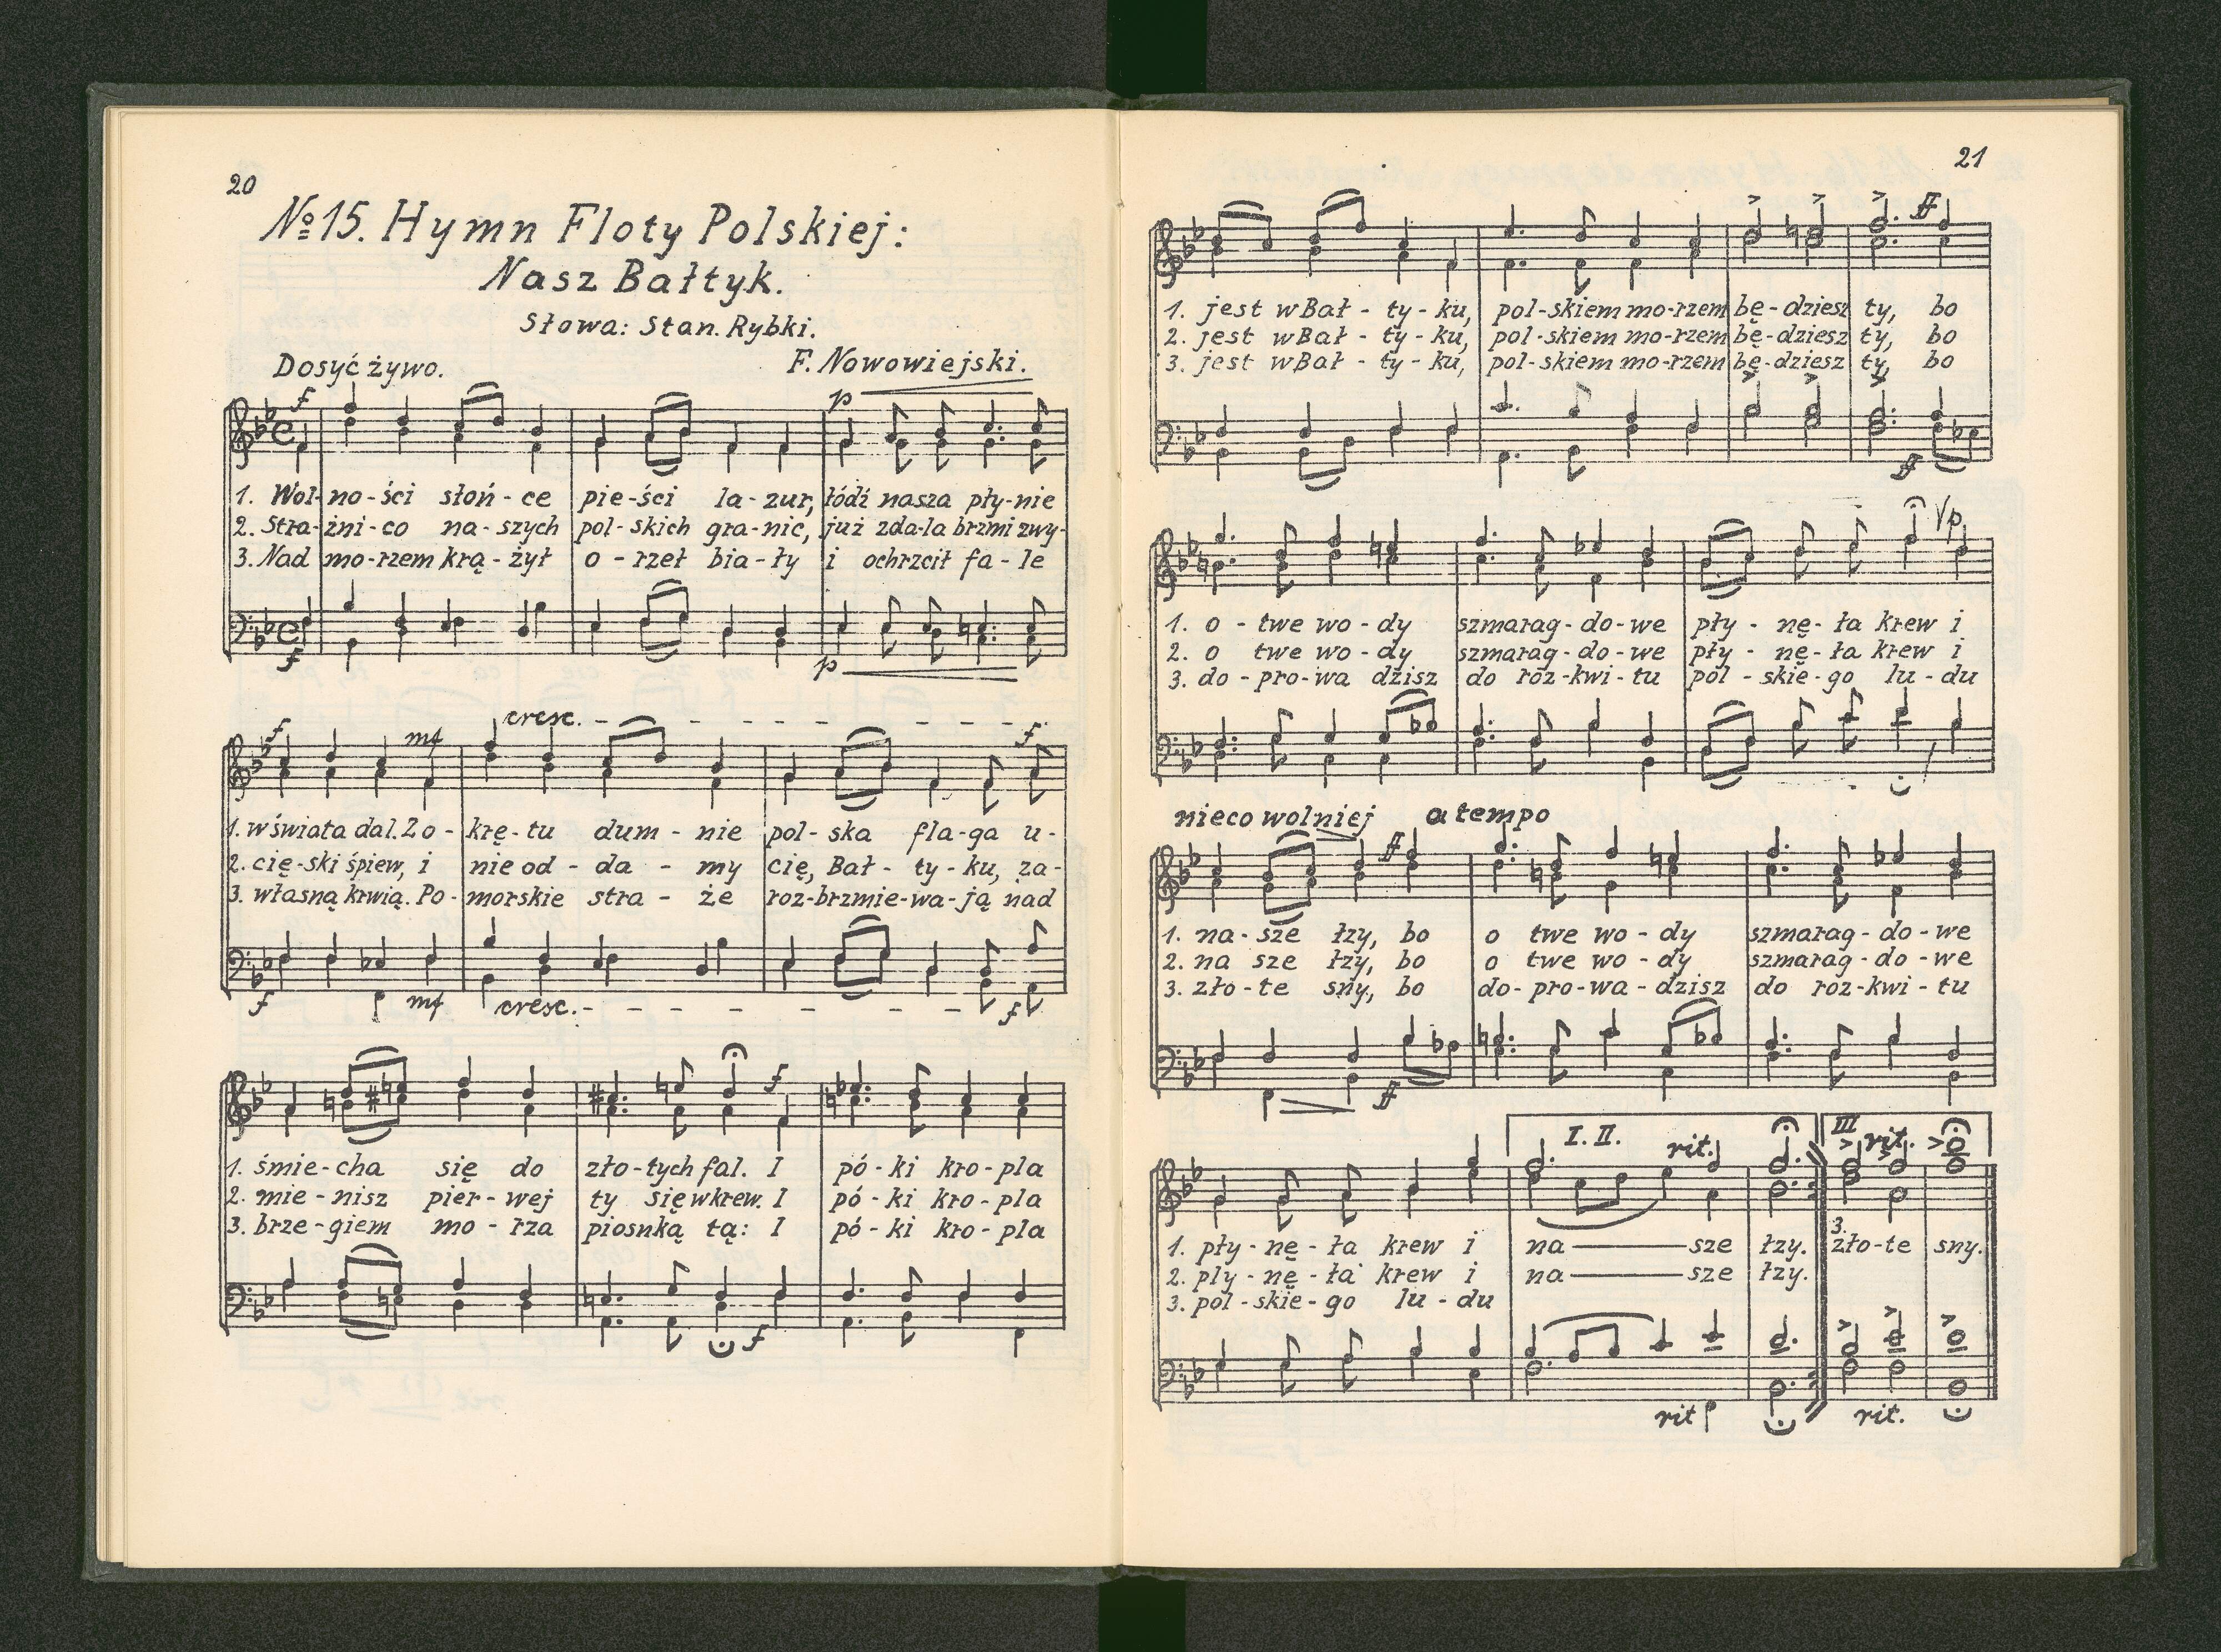 20
№15. Hymn Floty Polskiej:
Nasz Bałtyk.
Słowa: Stan. Rybki.
Dosyć żywo.
F. Nowowiejski.
f
p
1. Wol-no-ści słoń-ce pie-ści la-zur, łódź nasza pły-nie
2. Stra-żni-co na-szych pol-skich gra-nic, już zda-la brzmi zwy-
3. Nad mo-rzem krą-żył o-rzeł bia-ły i ochrzcił fa-le
f
p
f mf cresc. f
1. w świata dal. Z o-krę-tu dum-nie pol-ska fla-ga u-
2. cię-ski śpiew, i nie od-da-my cię, Bał-ty-ku, za-
3. własną krwią. Po-morskie stra-że roz-brzmie-wa-ją nad
f mf cresc. f
f
1. śmie-cha się do zło-tych fal. I pó-ki kro-pla
2. mie-nisz pier-wej ty się w krew. I pó-ki kro-pla
3. brze-giem mo-rza piosnką tą: I pó-ki kro-pla
f
21
ff
1. jest w Bał-ty-ku, pol-skiem mo-rzem bę-dziesz ty, bo
2. jest w Bał-ty-ku, pol-skiem mo-rzem bę-dziesz ty, bo
3. jest w Bał-ty-ku, pol-skiem mo-rzem bę-dziesz ty, bo
ff
p
1. o-twe wo-dy szmarag-do-we pły-nę-ła krew i
2. o twe wo-dy szmarag-do-we pły-nę-ła krew i
3. do-pro-wa dzisz do roz-kwi-tu pol-skie-go lu-du
nieco wolniej a tempo
ff
1. na-sze łzy, bo o twe wo-dy szmarag-do-we
2. na sze łzy, bo o twe wo-dy szmarag-do-we
3. zło-te sny, bo do-pro-wa-dzisz do roz-kwi-tu
ff
I. II. rit. III rit.
1. pły-nę-ła krew i na-sze łzy. 3. zło-te sny.
2. ply-nę-ła krew i na-sze łzy.
3. pol-skie-go lu-du
rit rit.